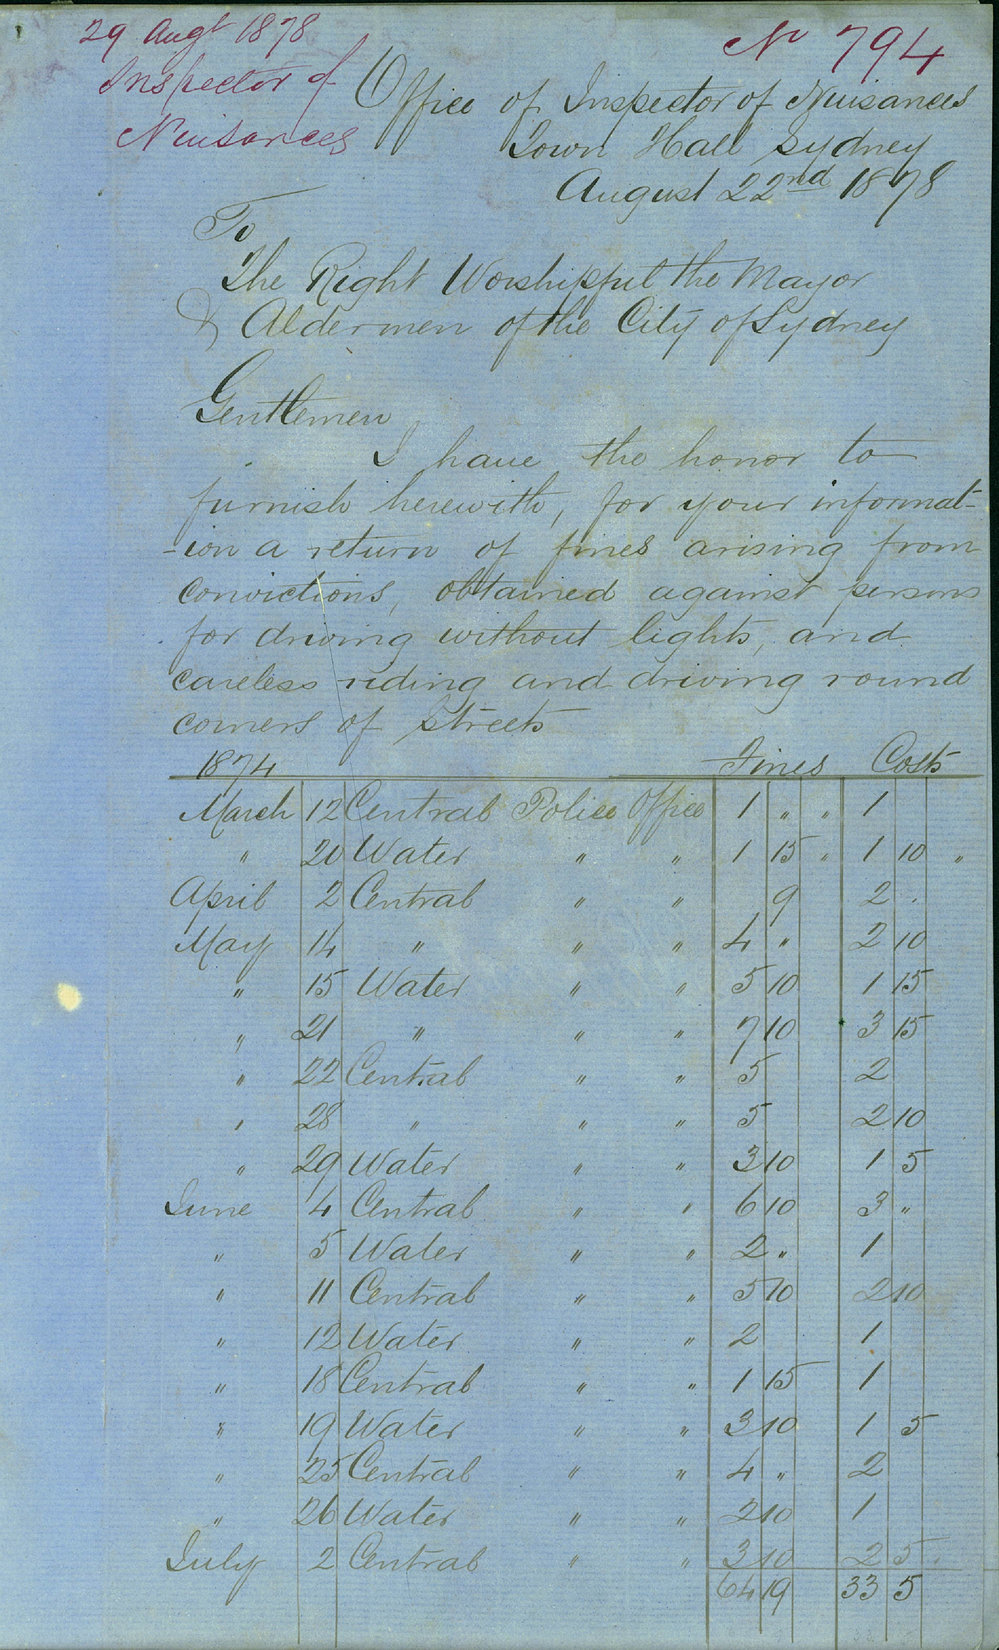 29 Augt 1878
Inspector of
Nuisances
No 794
Office of Inspector of Nuisances
Town Hall Sydney
August 22nd 1878
To
The Right Worshipful the Mayor
& Aldermen of the City of Sydney
Gentlemen
I have the honor to
furnish herewith, for your informat-
-ion a return of fines arising from
convictions, obtained against persons
for driving without lights, and
careless riding and driving round
corners of streets
1874 Fines Costs
March 12 Central Police Office 1 " " 1
" 20 Water " " 1 15 " 1 10 "
April 2 Central " " 9 2 .
May 14 " " " 4 " 2 10
" 15 Water " " 5 10 1 15
" 21 " " " 7 10 3 15
" 22 Central " " 5 2
" 28 " " " 5 2 10
" 29 Water " " 3 10 1 5
June 4 Central " " 6 10 3 "
" 5 Water " " 2 " 1
" 11 Central " " 5 10 2 10
" 12 Water " " 2 1
" 18 Central " " 1 15 1
" 19 Water " " 3 10 1 5
" 25 Central " " 4 " 2
" 26 Water " " 2 10 1
July 2 Central " " 3 10 2 5 .
64 19 33 5